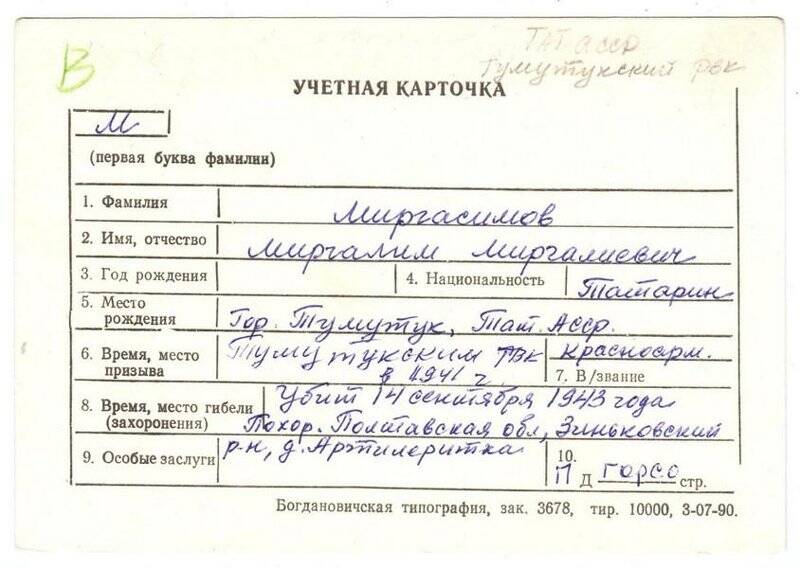 В
ТАТ АССР
Тумутукский РВК
УЧЕТНАЯ КАРТОЧКА
М
(первая буква фамилии)
1. Фамилия Миргасимов
2. Имя, отчество Миргалим Миргалиевич
3. Год рождения 4. Национальность Татарин
5. Место рождения Гор. Тумутук, Тат. Асср.
6. Время, место призыва Тумутукским РВК в 1941 г.
красноарм.
7. В/звание
8. Время, место гибели (захоронения) Убит 14 сентября 1943 года
Похор. Полтавская обл, Зиньковский
р-н, д. Артилеритка
9. Особые заслуги
10.
П Д горсо стр.
Богдановичская типография, зак. 3678, тир. 10000, 3-07-90.